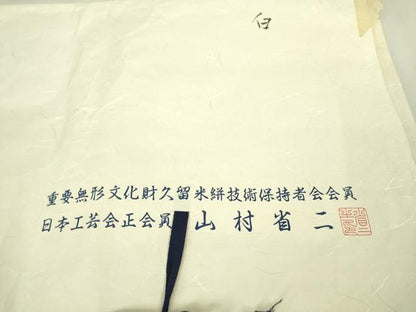 白
重要無形文化財久留米絣技術保持者会会員
日本工芸会正会員 山村省二